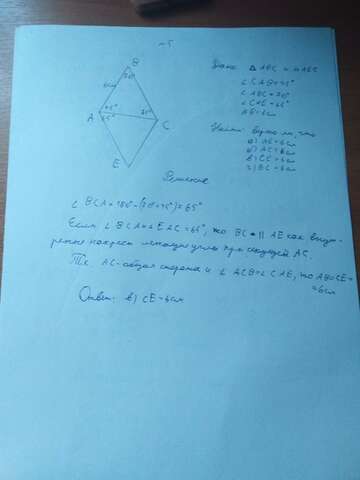 №5
B
6см
70°
A
45°
65°
C
E
Дано: △ ABC и △ AEC
∠ CAB=45°
∠ ABC=70°
∠ CAE=65°
AB=6см
Найти: Верно ли, что
а) AE=6см
б) AC=6см
в) CE=6см
г) BC=6см
Решение
∠ BCA=180°-(70°+45°)=65°
Если ∠ BCA=∠EAC=65°, то BC ∥ AE как внут-
ренние накрест лежащие углы при секущей AC.
Тк. AC-общая сторона и ∠ ACB=∠CAE, то AB=CE=
=6см
Ответ: в) CE=6см